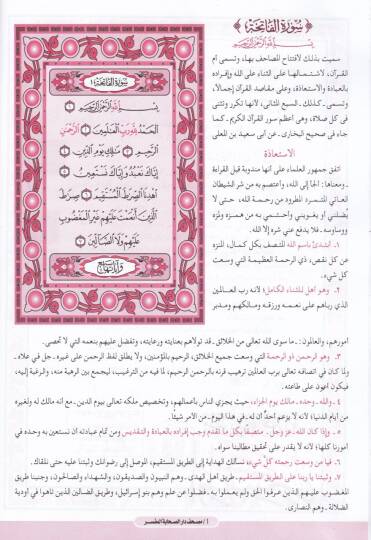 سورة الفاتحة
بسم الله الرحمن الرحيم
سميت بذلك لافتتاح المصاحف بها، وتسمى أم
القرآن، لاشتمالها على الثناء على الله وإفراده
بالعبادة والاستعاذة، وعلى مقاصد القرآن إجمالاً،
وتسمى ـ كذلك ـ السبع المثاني، لأنها تكرر وتثنى
في كل صلاة، وهي أعظم سور القرآن الكريم ـ كما
جاء في صحيح البخارى ـ عن أبى سعيد بن المعلى
الاستعاذة
اتفق جمهور العلماء على أنها مندوبة قبل القراءة
ـ ومعناها: ألجأ إلى الله، وأعتصم به من شر الشيطان
العاتي المتمرد المطرود من رحمة الله، حتى لا
يضلني أو يغويني وأحتمي به من همزه ولمزه
ووساوسه ـ فلا يدفع عني شره إلا الله.
١ـ أبتدئ باسم الله المتصف بكل كمال، المنزه
عن كل نقص، ذي الرحمة العظيمة التي وسعت
كل شيء.
٢ـ وهو أهل للثناء الكامل؛ لأنه رب العالمين
الذي رباهم على نعمه ورزقه ومالكهم ومدبر
سورة الفاتحة
بسم الله الرحمن الرحيم
الحمد لله رب العالمين الرحمن
الرحيم مالك يوم الدين
إياك نعبد وإياك نستعين
اهدنا الصراط المستقيم صراط
الذين أنعمت عليهم غير المغضوب
عليهم ولا الضالين
وآياتها سبع
أمورهم، والعالمون: ـ ما سوى الله تعالى من الخلائق ـ قد تولاهم بعنايته ورعايته، وتفضل عليهم بنعمه التي لا تحصى.
٣ـ وهو الرحمن ذو الرحمة التي وسعت جميع الخلائق، الرحيم بالمؤمنين، ولا يطلق لفظ الرحمن على غيره ـ جل في علاه ـ
ولما كان في اتصافه تعالى برب العالمين ترهيب قرنه بالرحمن الرحيم، لما فيه من الترغيب، ليجمع بين الرهبة منه، والرغبة إليه،
فيكون أعون على طاعته.
٤ـ والله ـ وحده ـ مالك يوم الجزاء، حيث يجزي الناس بأعمالهم، وتخصيص ملكه تعالى بيوم الدين ـ مع أنه مالك له ولغيره
من أيام الدنيا؛ لأنه لا يزعم أحد أن له ـ في هذا اليوم ـ من الأمر شيئًا.
٥ـ وإذا كان الله ـ عز وجل ـ متصفًا بكل ما تقدم وجب إفراده بالعبادة والتقديس ومن تمام عبادته أن نستعين به وحده في
أمورنا كلها؛ لأنه لا يقدر على تحقيق مطالبنا سواه.
٦ـ فيا من وسعت رحمته كل شيء نسألك الهداية إلى الطريق المستقيم، الموصل إلى رضوانك وثبتنا عليه حتى نلقاك.
٧ـ وثبتنا يا ربنا على الطريق المستقيم ـ طريق أهل الهدى ـ وهم النبيون والصديقون، والشهداء، والصالحون، وجنبنا طريق
المغضوب عليهم الذين عرفوا الحق ولم يعملوا به ـ فضلوا عن علم وهم بنو إسرائيل، وطريق الضالين الذين تاهوا في أودية
الضلالة ـ وهم النصارى.
١ / مصحف دار الصحابة المفسر